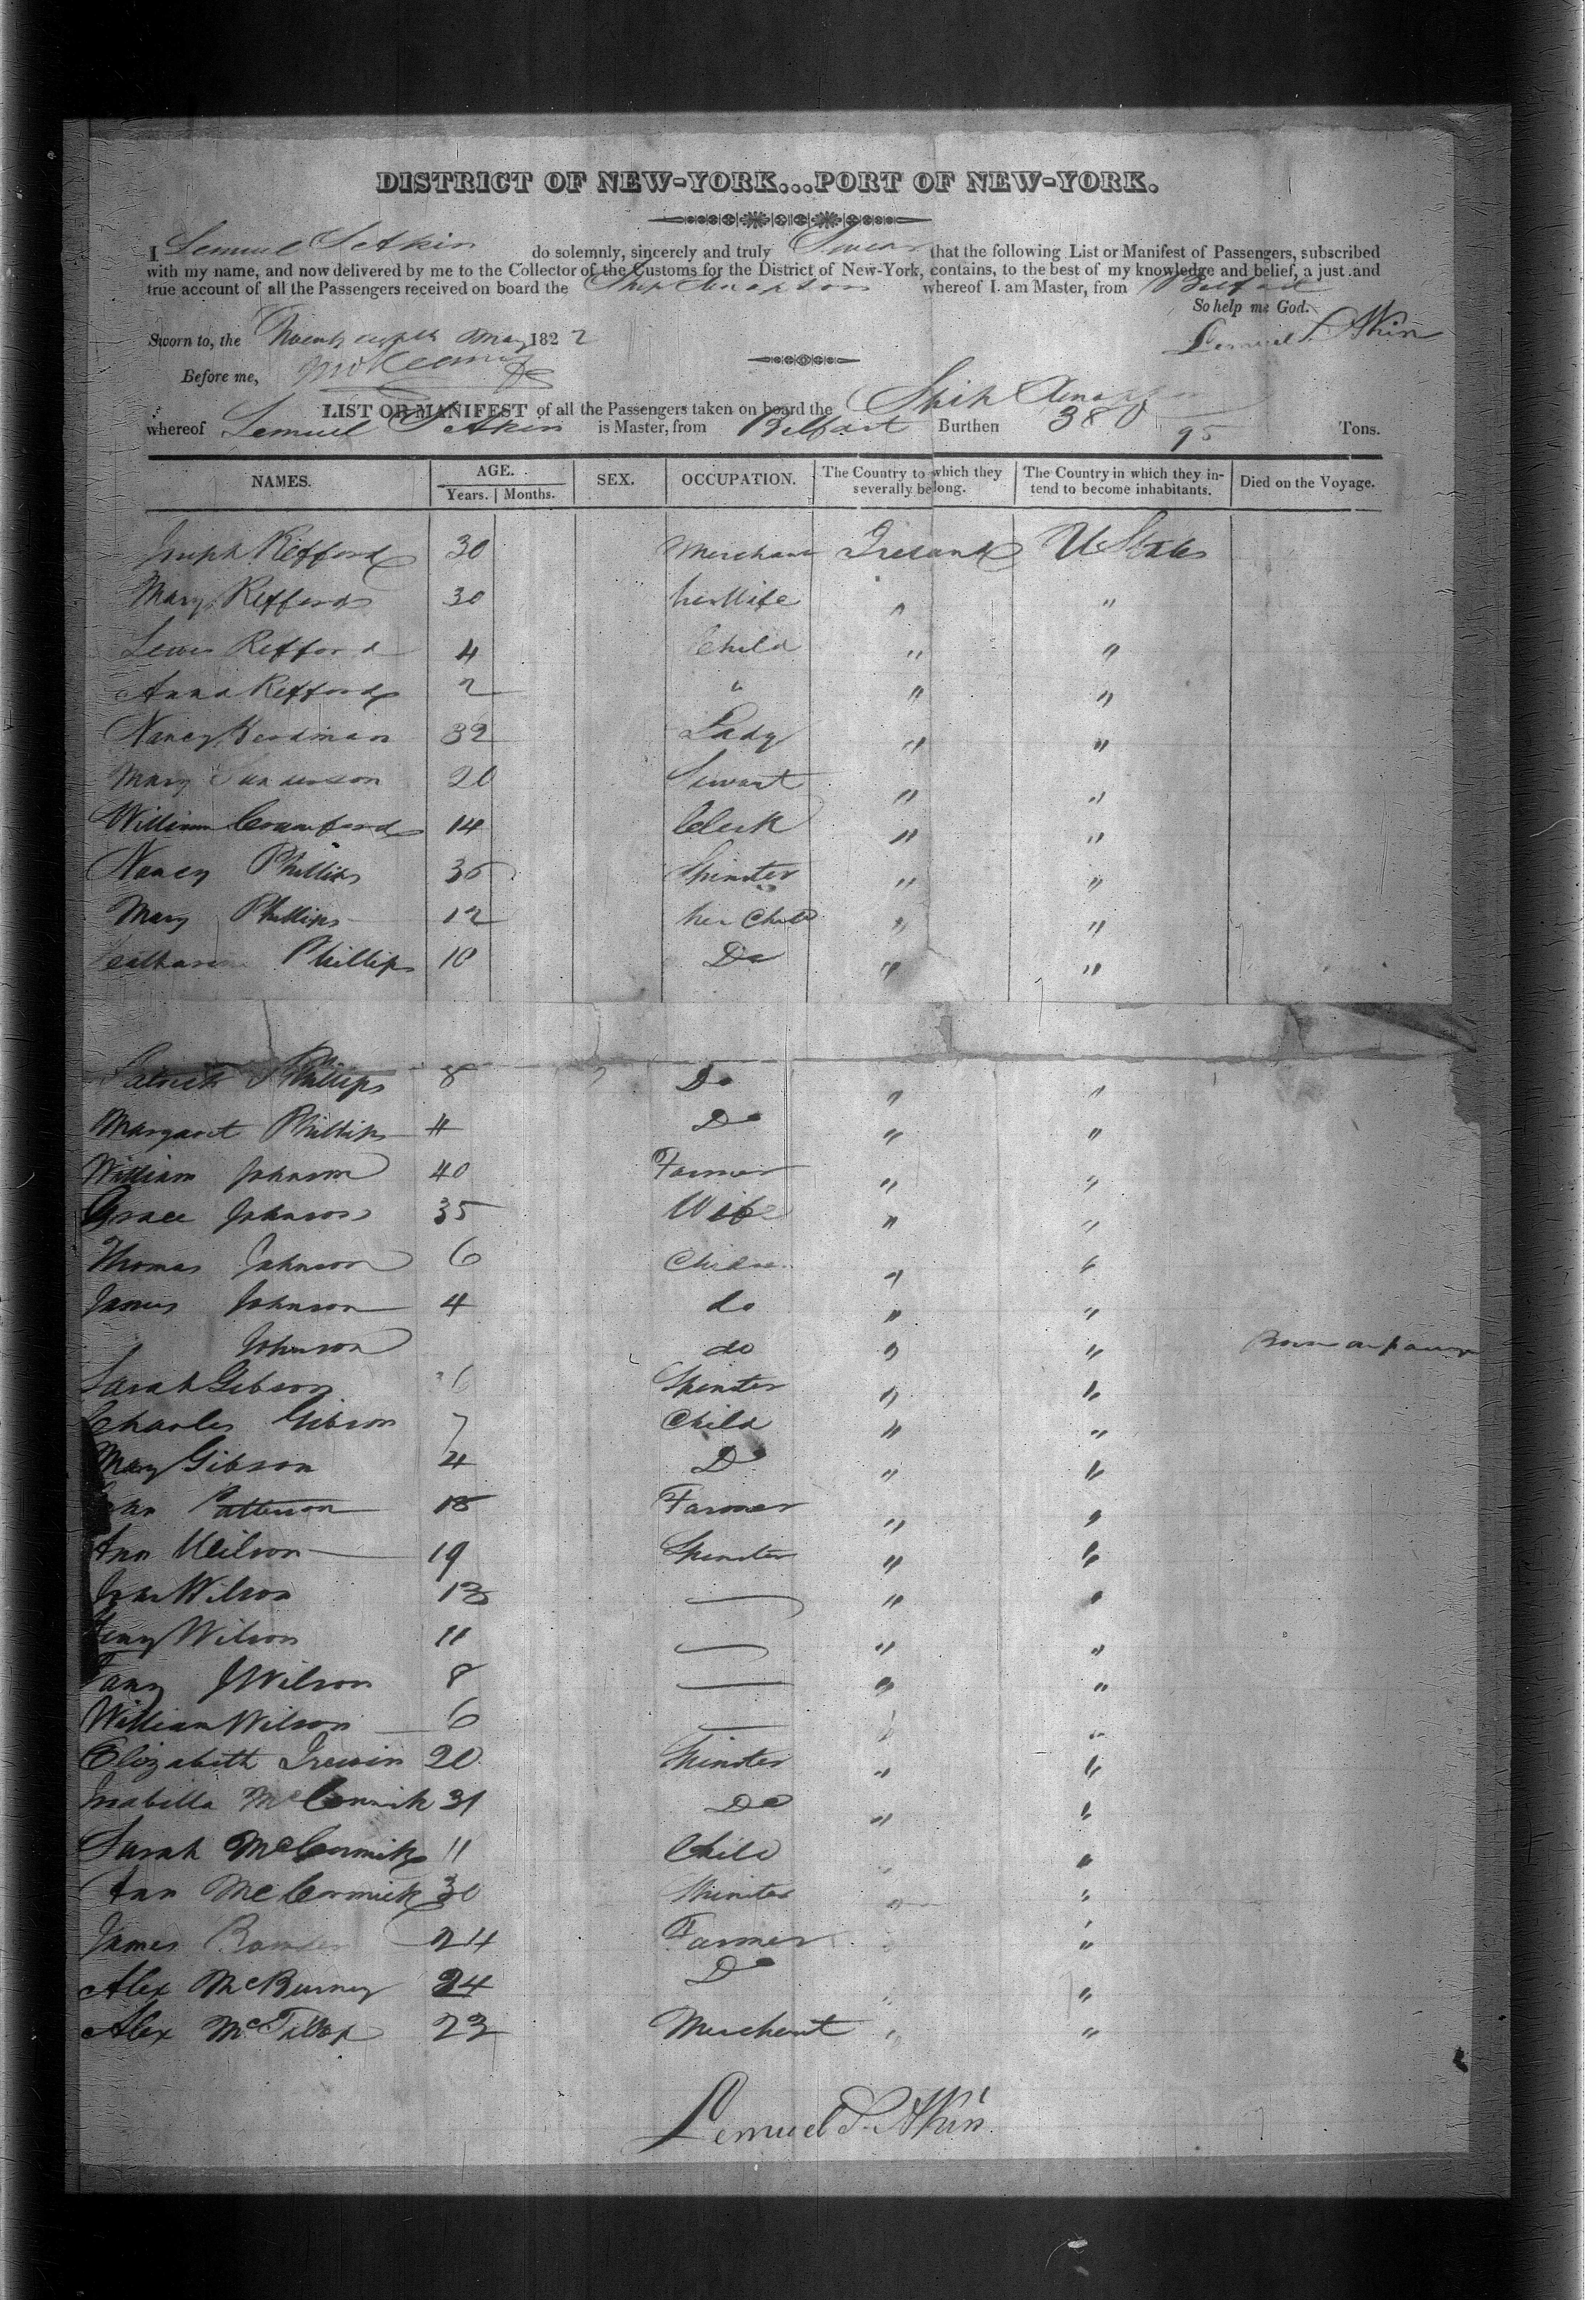 DISTRICT OF NEW-YORK...PORT OF NEW-YORK.
I Lemuel S Atkin do solemnly, sincerely and truly Swear that the following List or Manifest of Passengers, subscribed
with my name, and now delivered by me to the Collector of the Customs for the District of New-York, contains, to the best of my knowledge and belief, a just and
true account of all the Passengers received on board the Ship whereof I am Master, from Belfast
So help me God.
Sworn to, the May 1822
Lemuel S. Atkin
Before me,
LIST OR MANIFEST of all the Passengers taken on board the Ship
whereof Lemuel S Atkin is Master, from Belfast Burthen 380 95 Tons.
NAMES. AGE. SEX. OCCUPATION. The Country to which they severally belong. The Country in which they intend to become inhabitants. Died on the Voyage.
Years. Months.
Joseph Refford 30 Merchant Ireland U States
Mary Refford 30 his Wife " "
Lewis Refford 4 Child " "
Anna Refford 2 " " "
Nancy 32 Lady " "
Mary 20 Servant " "
William Crawford 14 Clerk " "
Nancy Phillips Spinster " "
Mary Phillips 12 her Child " "
Phillips 10 Do " "
Patrick Phillips 8 Do " "
Margaret Phillips 4 Do " "
William Johnson 40 Farmer " "
Grace Johnson 35 Wife " "
Thomas Johnson 6 " "
James Johnson 4 do " "
Johnson do " " Born on
Sarah Gibson Spinster " "
Charles Gibson 7 Child " "
Mary Gibson 4 Do " "
Patterson 18 Farmer " "
Ann Wilson 19 Spinster " "
Wilson 13 " "
Wilson 11 " "
Wilson 8 " "
William Wilson 6 " "
Elizabeth Irewin 20 Spinster " "
Isabella McCormick 31 Do " "
Sarah McCormick 11 Child " "
Ann McCormick 30 Spinster " "
James 24 Farmer " "
Alex McBurney 24 Do " "
Alex 23 Merchant " "
Lemuel S. Atkin